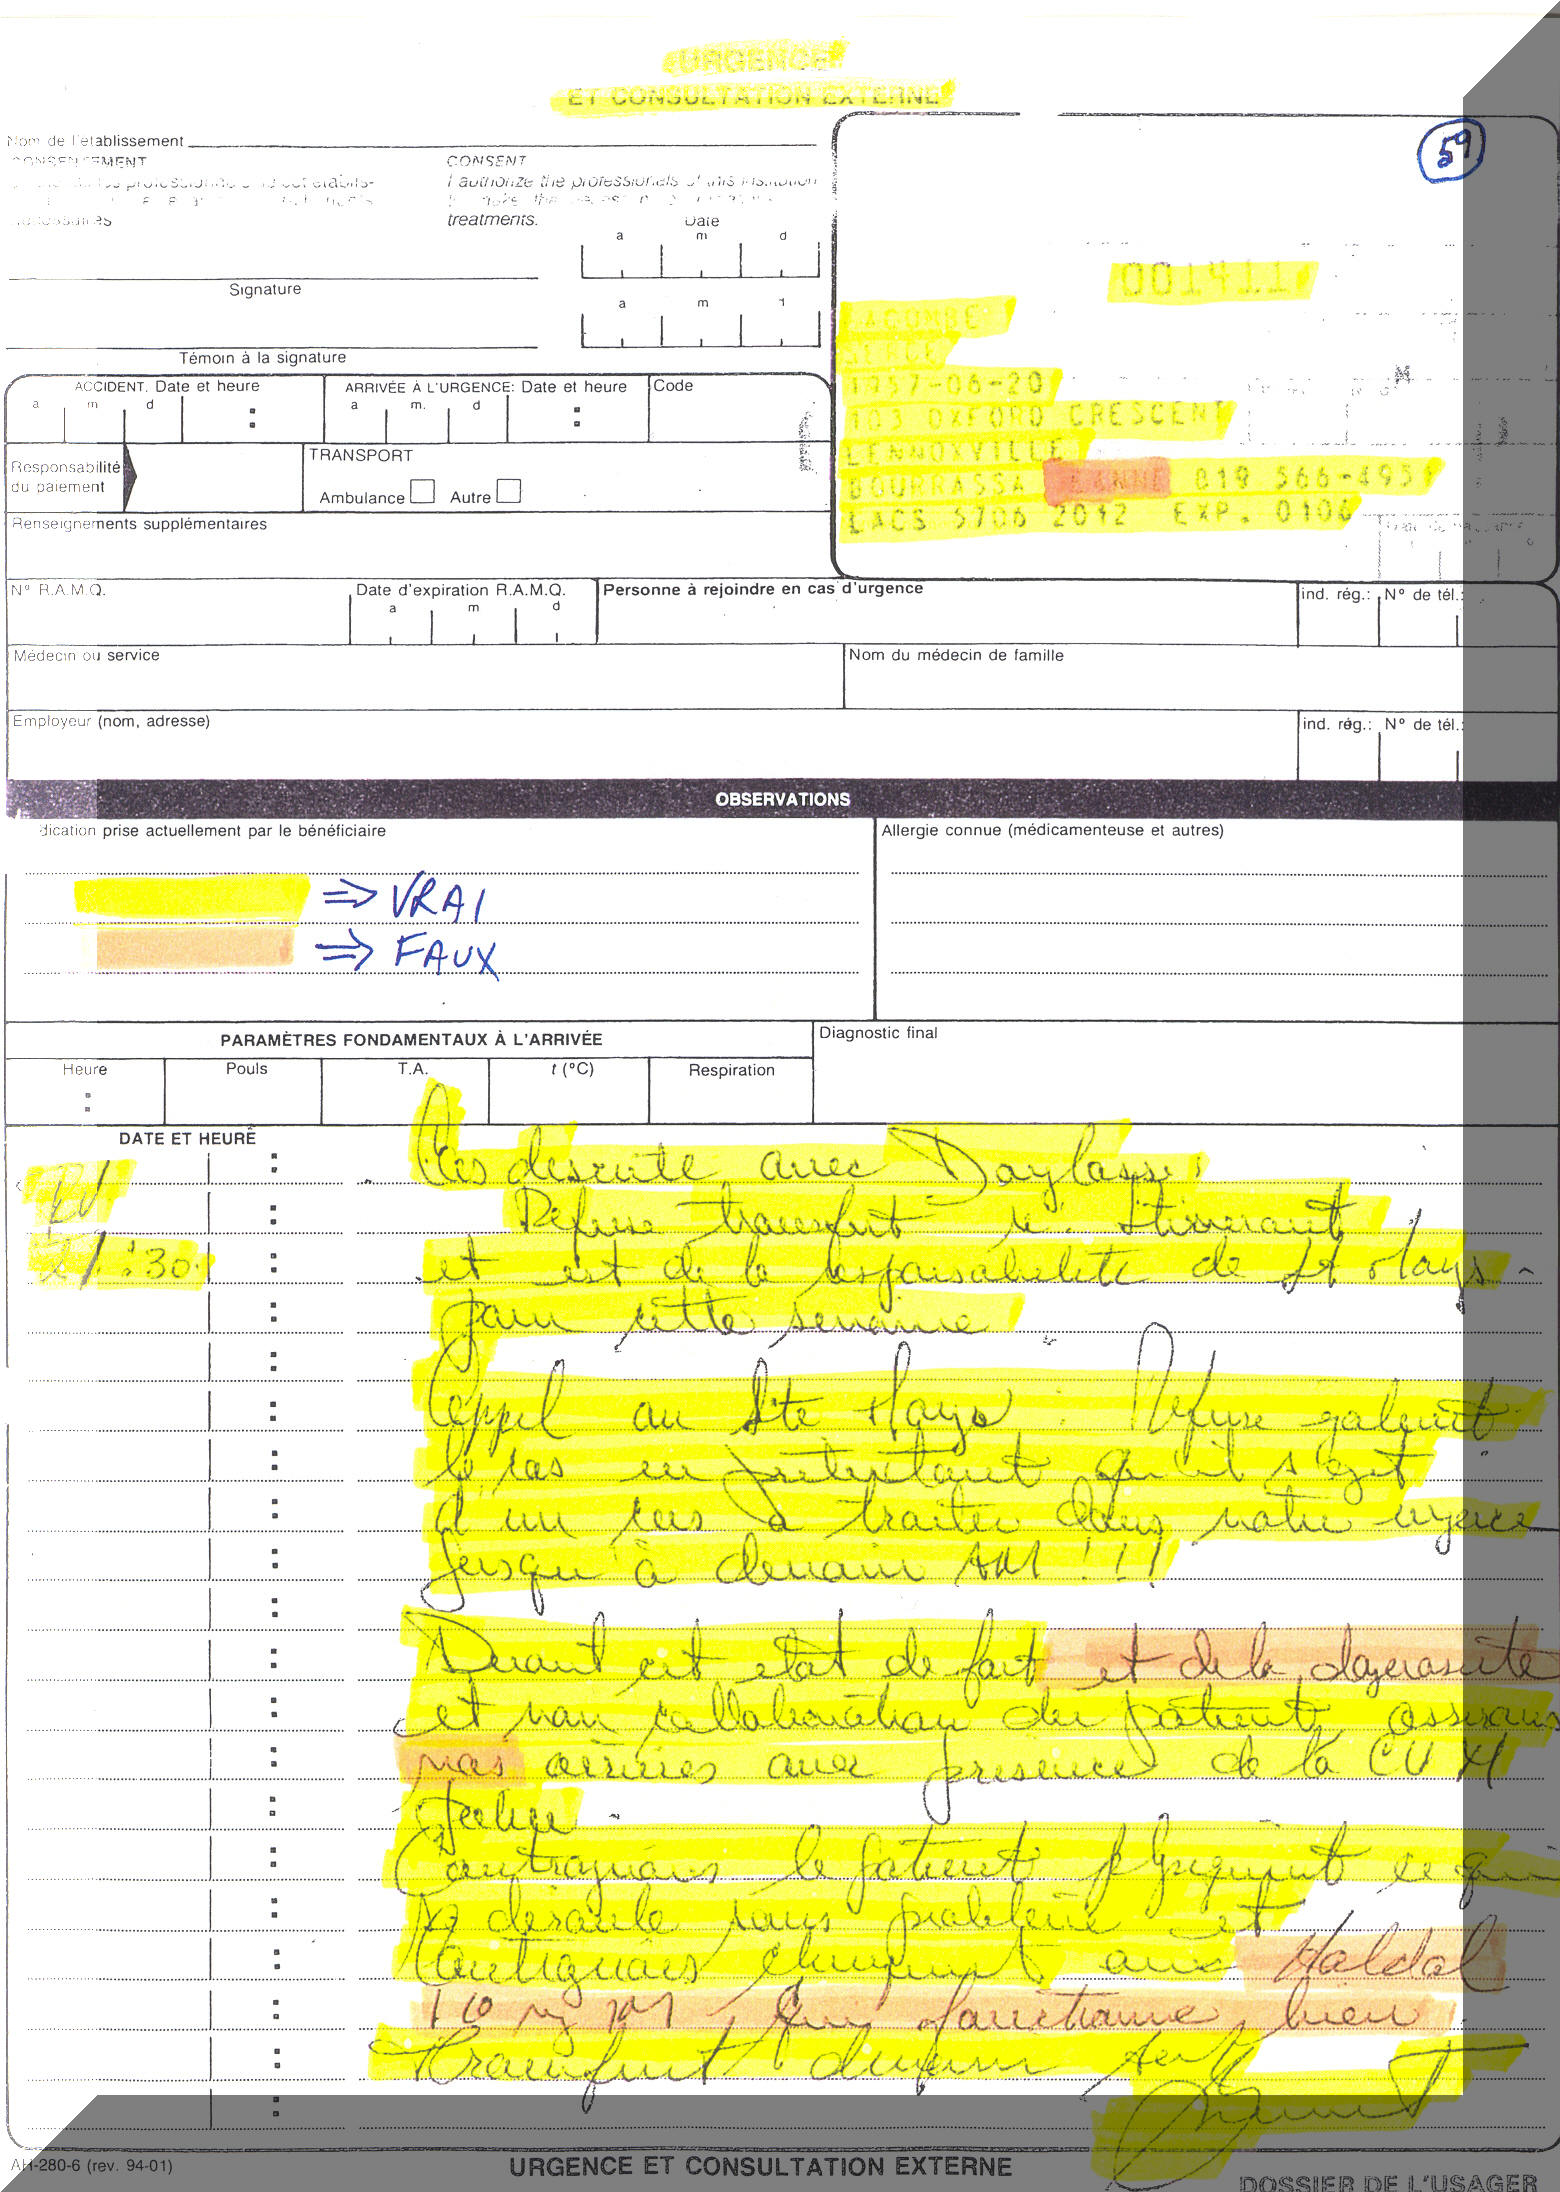 URGENCE
ET CONSULTATION EXTERNE
59
Nom de l'établissement
CONSENTEMENT
CONSENT
I authorize the professionals of this institution
treatments.
Date
a m d
Signature
a m
Témoin à la signature
001411
LACOMBE
SERGE
1957-06-20
103 OXFORD CRESCENT
LENNOXVILLE
BOURRASSA 819 566-4951
LACS 5706 2012 EXP. 0106
ACCIDENT. Date et heure
a m d :
ARRIVÉE À L'URGENCE: Date et heure
a m. d :
Code
Responsabilité du paiement
TRANSPORT
Ambulance Autre
Renseignements supplémentaires
Nº R.A.M.Q.
Date d'expiration R.A.M.Q.
a m d
Personne à rejoindre en cas d'urgence
ind. rég.: Nº de tél.:
Médecin ou service
Nom du médecin de famille
Employeur (nom, adresse)
ind. rég.: Nº de tél.:
OBSERVATIONS
dication prise actuellement par le bénéficiaire
Allergie connue (médicamenteuse et autres)
⇒ VRAI
⇒ FAUX
PARAMÈTRES FONDAMENTAUX À L'ARRIVÉE
Diagnostic final
Heure Pouls T.A. t (ºC) Respiration
DATE ET HEURE
Cas discuté avec
21:30
Refuse transfert Itinérant
et est de la responsabilité de
pour cette semaine
Appel au Refuse également
le cas en prétextant qu'il s'agit
d'un cas à traiter dans notre urgence
jusqu'à demain AM !!!
Devant cet état de fait et de la dangerosité
et non collaboration du patient assurons
nos arrières avec présence de la
Contraignons le patient physiquement ce qui
se déroule sans problème et
Contraignons chimiquement avec Haldol
10 mg IM qui fonctionne bien
Transfert demain
AH-280-6 (rev. 94-01)
URGENCE ET CONSULTATION EXTERNE
DOSSIER DE L'USAGER